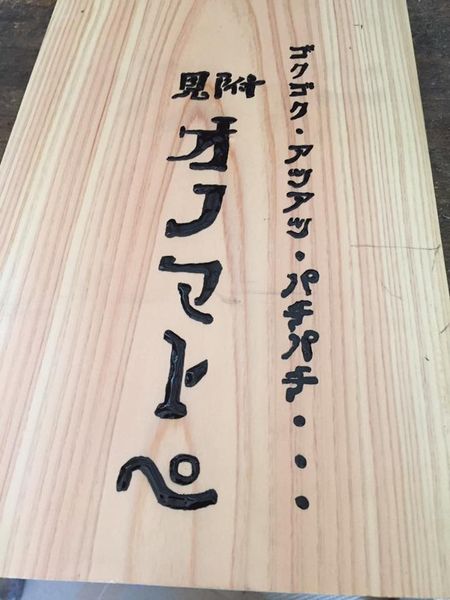 ホクホク・アツアツ・パチパチ・・・
見附
オノマトペ